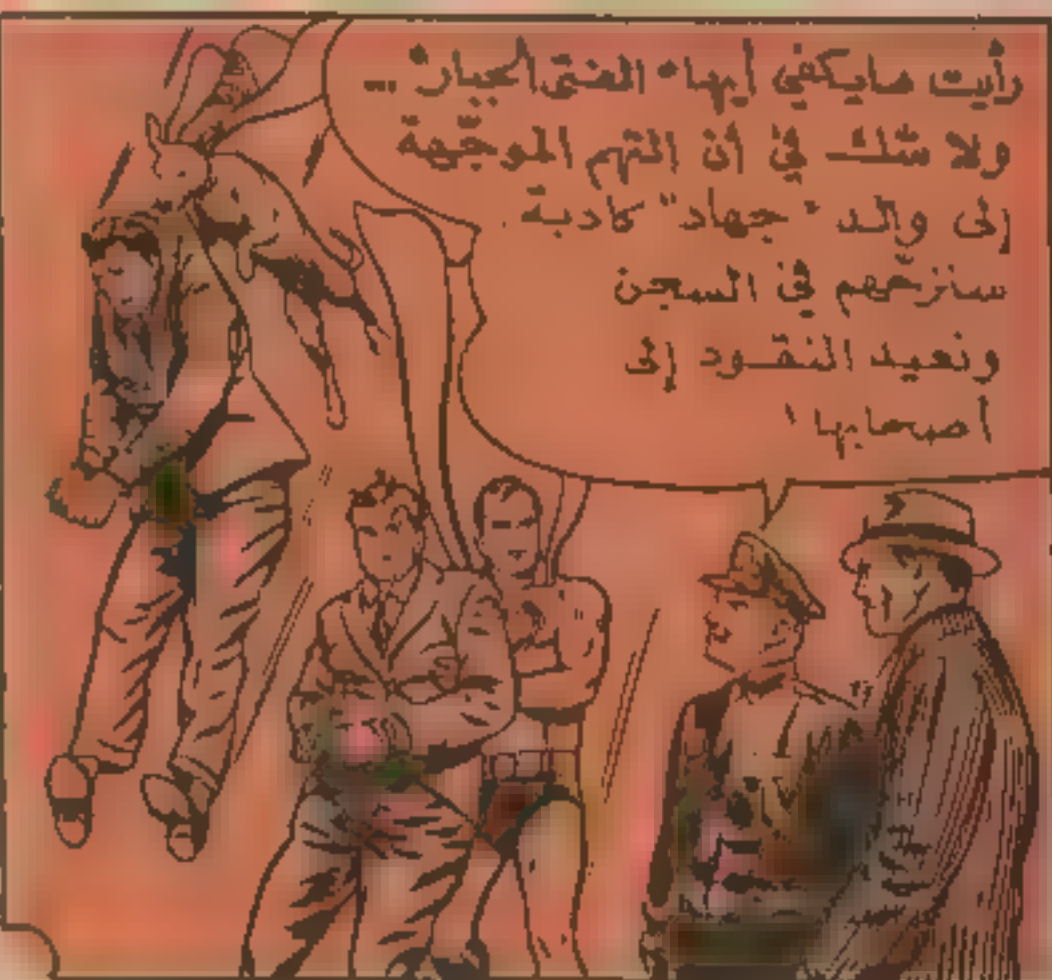 رأيت مايكفي أيها "الفتى الجبار" ...
ولا شك في أن التهم الموجهة
إلى والد "جهاد" كاذبة.
سنزجهم في السجن
ونعيد النقود إلى
أصحابها !